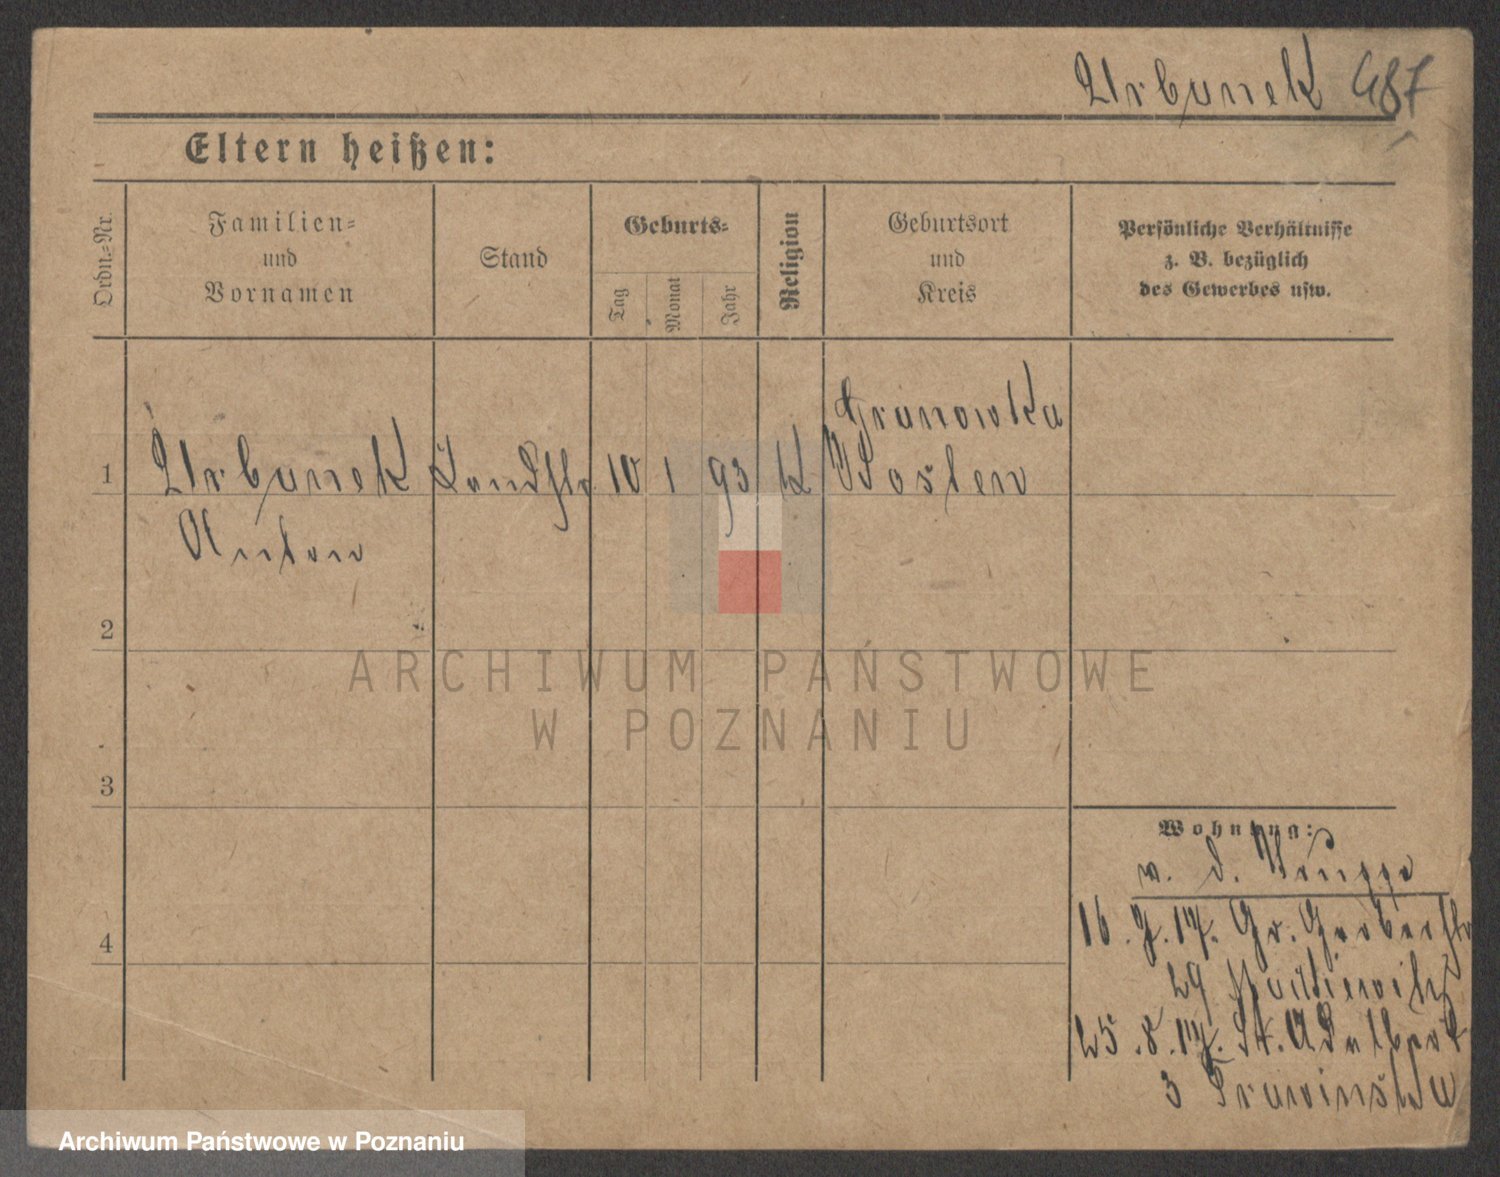 Urbanek 487
Eltern heißen:
Ordn.=Nr.
Familien=
und
Vornamen
Stand
Geburts=
Tag
Monat
Jahr
Religion
Geburtsort
und
Kreis
Persönliche Verhältnisse
z. B. bezüglich
des Gewerbes usw.
Granowka
1 Urbanek 10 1 93 K Posten
Anton
2
3
4
Wohnung:
v. d.
16. 17. Gr. Gerberstr
29
25. 8. 17. St. Adalbert
3
ARCHIWUM PAŃSTWOWE
W POZNANIU
Archiwum Państwowe w Poznaniu